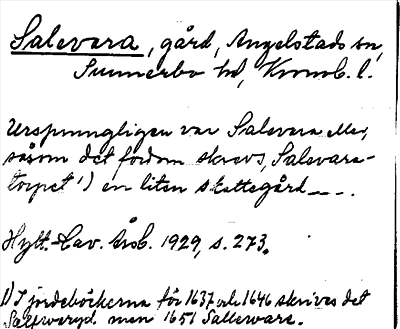 Salevara, gård, Angelstads sn,
Sunnerbo hd, Kronob. l.
Ursprungligen var Salevara eller,
såsom det fordom skrevs, Salevara-
torpet 1) en liten skattegård ---.
Hylt.-Cav. Årsb. 1929, s. 273.
1) I jordeböckerna för 1637 och 1646 skrives det
men 1651 Sallevare.